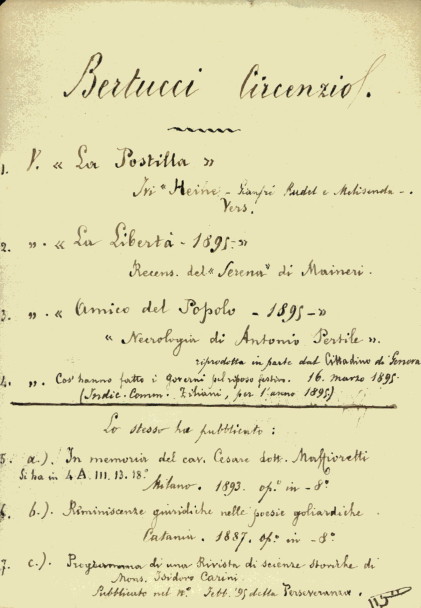 Bertucci Circenzio.
1. V. « La Postilla »
Ivi " Heine - Gianfré Rudel e Melisenda -.
Vers.
2. ". « La Libertà - 1895 - »
Recens. del "Serena" di Maineri.
3. ". « Amico del Popolo - 1895 - »
« Necrologia di Antonio Pertile ».
riprodotta in parte dal Cittadino di Genova
4. ". Cos' hanno fatto i Governi pel riposo festivo. 16. marzo 1895
(Indic. Comm. Ziliani, per l'anno 1895)
Lo stesso ha pubblicato :
5. a.). In memoria del cav. Cesare dott. Maffioretti
Si ha in 4 A. III. 13. 18.°
Milano. 1893. op.° in - 8.°
6. b.). Riminiscenze giuridiche nelle poesie goliardiche.
Catania. 1887. op.° in - 8.°
7. c.). Programma di una Rivista di scienze storiche di
Mons. Isidoro Carini.
Pubblicato nel n.° Febb. '95 della Perseveranza.